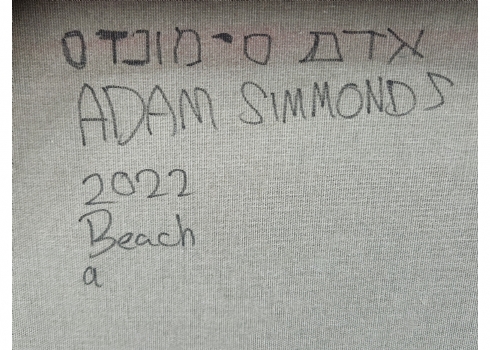 אדם סימונדס
ADAM SIMMONDS
2022
Beach
a